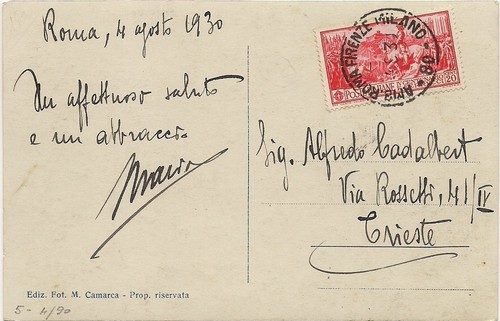 Roma, 4 agosto 1930
Un affettuoso saluto
e un abbraccio
Maria
Ediz. Fot. M. Camarca - Prop. riservata
5 - 4/90
AMB. ROMA FIRENZE MILANO - 68
POSTE ITALIANE
CENT 20
Sig. Alfredo Cadalbert
Via Rossetti, 41/IV
Trieste